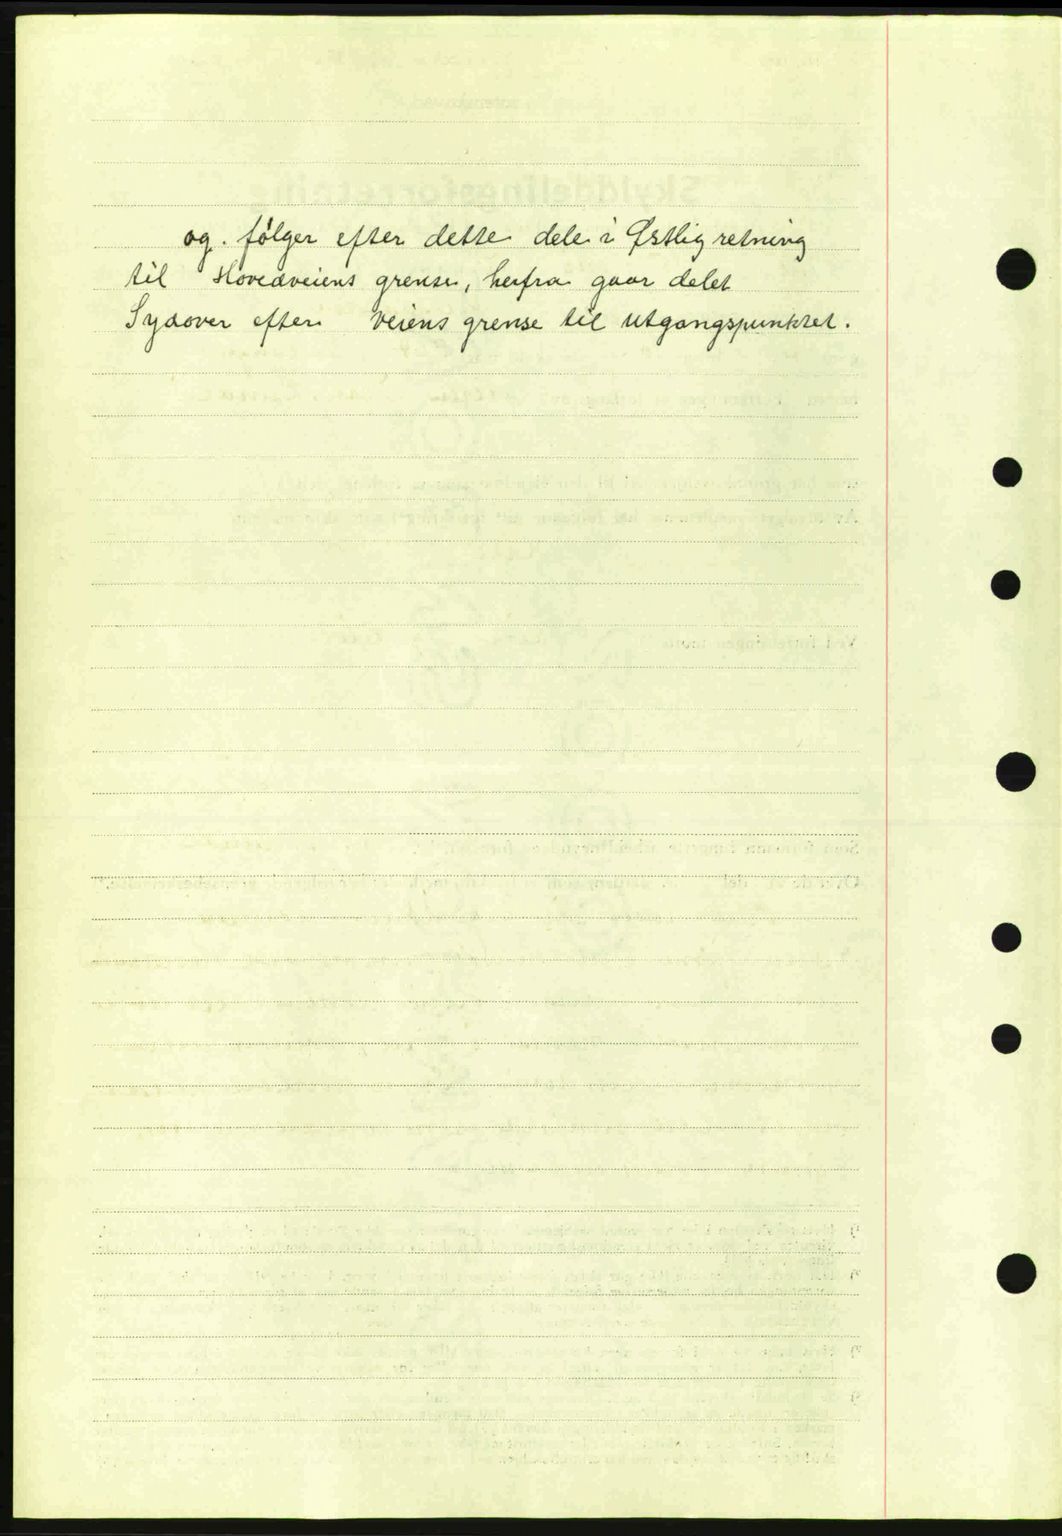 og. følger efter dette dele i Østlig retning
til Hovedveiens grense, herfra gaar delet
Sydover efter Veiens grense til utgangspunktet.